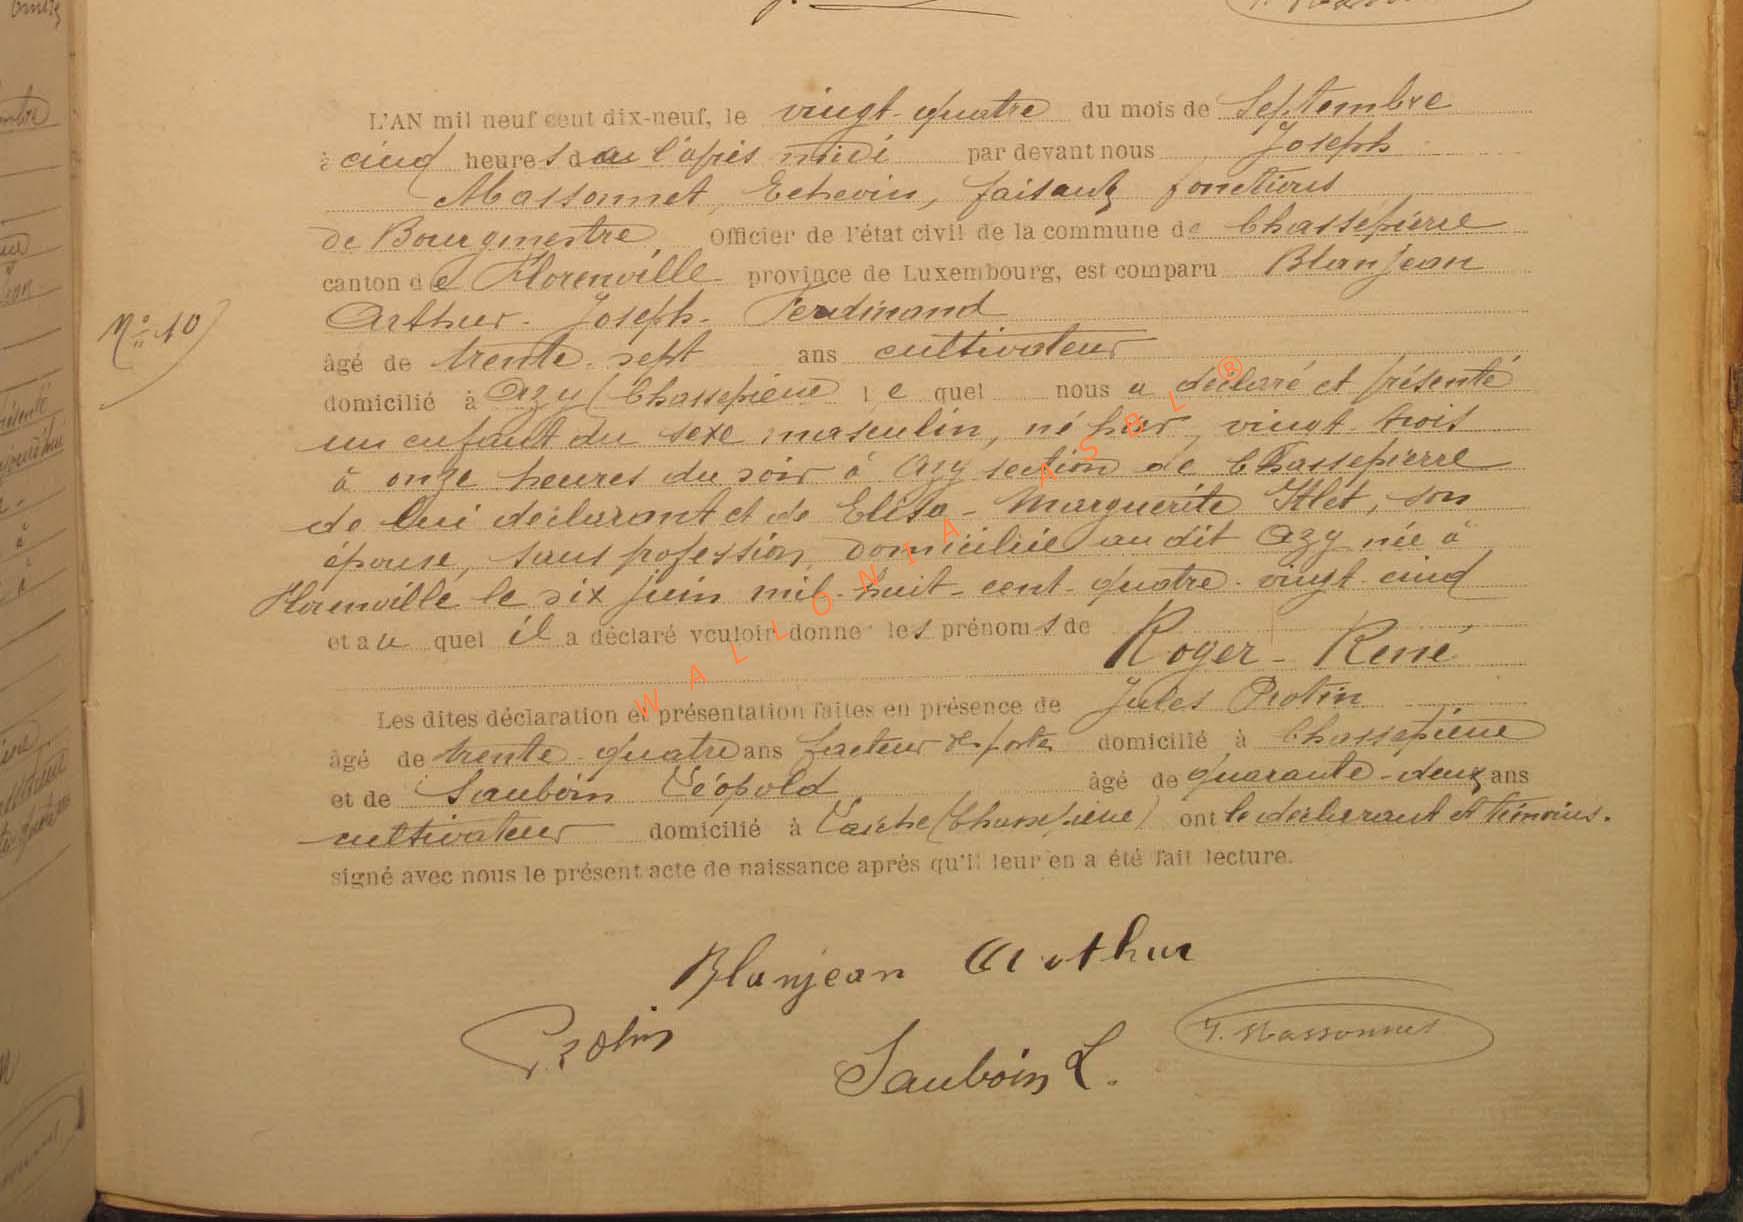 L'AN mil neuf cent dix-neuf, le vingt-quatre du mois de Septembre
à cinq heures de l'après midi par devant nous Joseph
Massonnet, Echevin, faisant fonctions
de Bourgmestre Officier de l'état civil de la commune de Chassepierre
canton de Florenville province de Luxembourg, est comparu Blanjean
Arthur-Joseph-Ferdinand
N° 10
âgé de trente-sept ans cultivateur
domicilié à Azy (Chassepierre lequel nous a déclaré et présenté
un enfant du sexe masculin, né hier, vingt trois
à onze heures du soir à Azy section de Chassepierre
de lui déclarant et de Elisa-Marguerite, son
épouse, sans profession, domiciliée audit Azy née à
Florenville le six juin mil-huit-cent-quatre-vingt-cinq
et auquel il a déclaré vouloir donner les prénoms de
Roger-René
Les dites déclaration et présentation faites en présence de Jules Protin
âgé de trente-quatre ans facteur des postes domicilié à Chassepierre
et de Sauboin Léopold âgé de quarante-deux ans
cultivateur domicilié à Laiche (Chassepierre) ont le déclarant et témoins.
signé avec nous le présent acte de naissance après qu'il leur en a été fait lecture.
Blanjean Arthur
Protin
J. Massonnet
Sauboin L.
WALLONIA ASBL ®